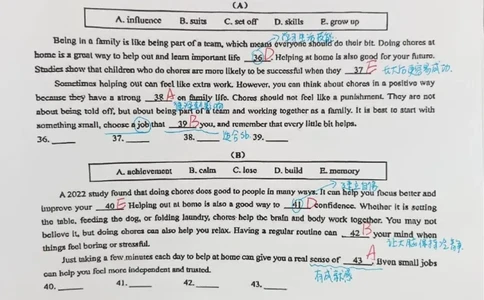 (A)
A. influence B. suits C. set off D. skills E. grow up
Being in a family is like being part of a team, which means everyone should do their bit. Doing chores at
home is a great way to help out and learn important life 36 D. Helping at home is also good for your future.
Studies show that children who do chores are more likely to be successful when they 37 E 长大后更易成功.
Sometimes helping out can feel like extra work. However, you can think about chores in a positive way
because they have a strong 38 A on family life. Chores should not feel like a punishment. They are not
about being told off, but about being part of a team and working together as a family. It is best to start with
something small, choose a job that 39 B you, and remember that every little bit helps.
36. 37. 38. 适合sb. 39.
(B)
A. achievement B. calm C. lose D. build E. memory
A 2022 study found that doing chores does good to people in many ways. It can help you focus better and
improve your 40 E Helping out at home is also a good way to 41 D confidence. Whether it is setting
the table, feeding the dog, or folding laundry, chores help the brain and body work together. You may not
believe it, but doing chores can also help you relax. Having a regular routine can 42 B your mind when
things feel boring or stressful. 让大脑保持冷静
Just taking a few minutes each day to help at home can give you a real sense of 43 A. Even small jobs
can help you feel more independent and trusted. 有成就感
40. 41. 42. 43.